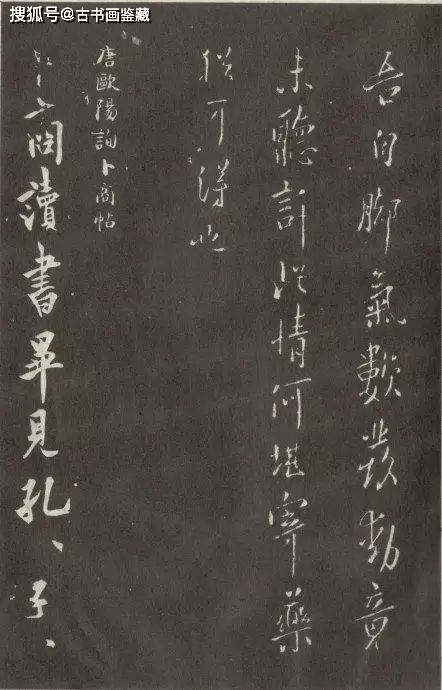 搜狐号@古书画鉴藏
吾自腳氣數發動竟
未聽許此情何堪寄藥
猶可得也
唐歐陽詢卜商帖
卜商讀書畢見孔、子、